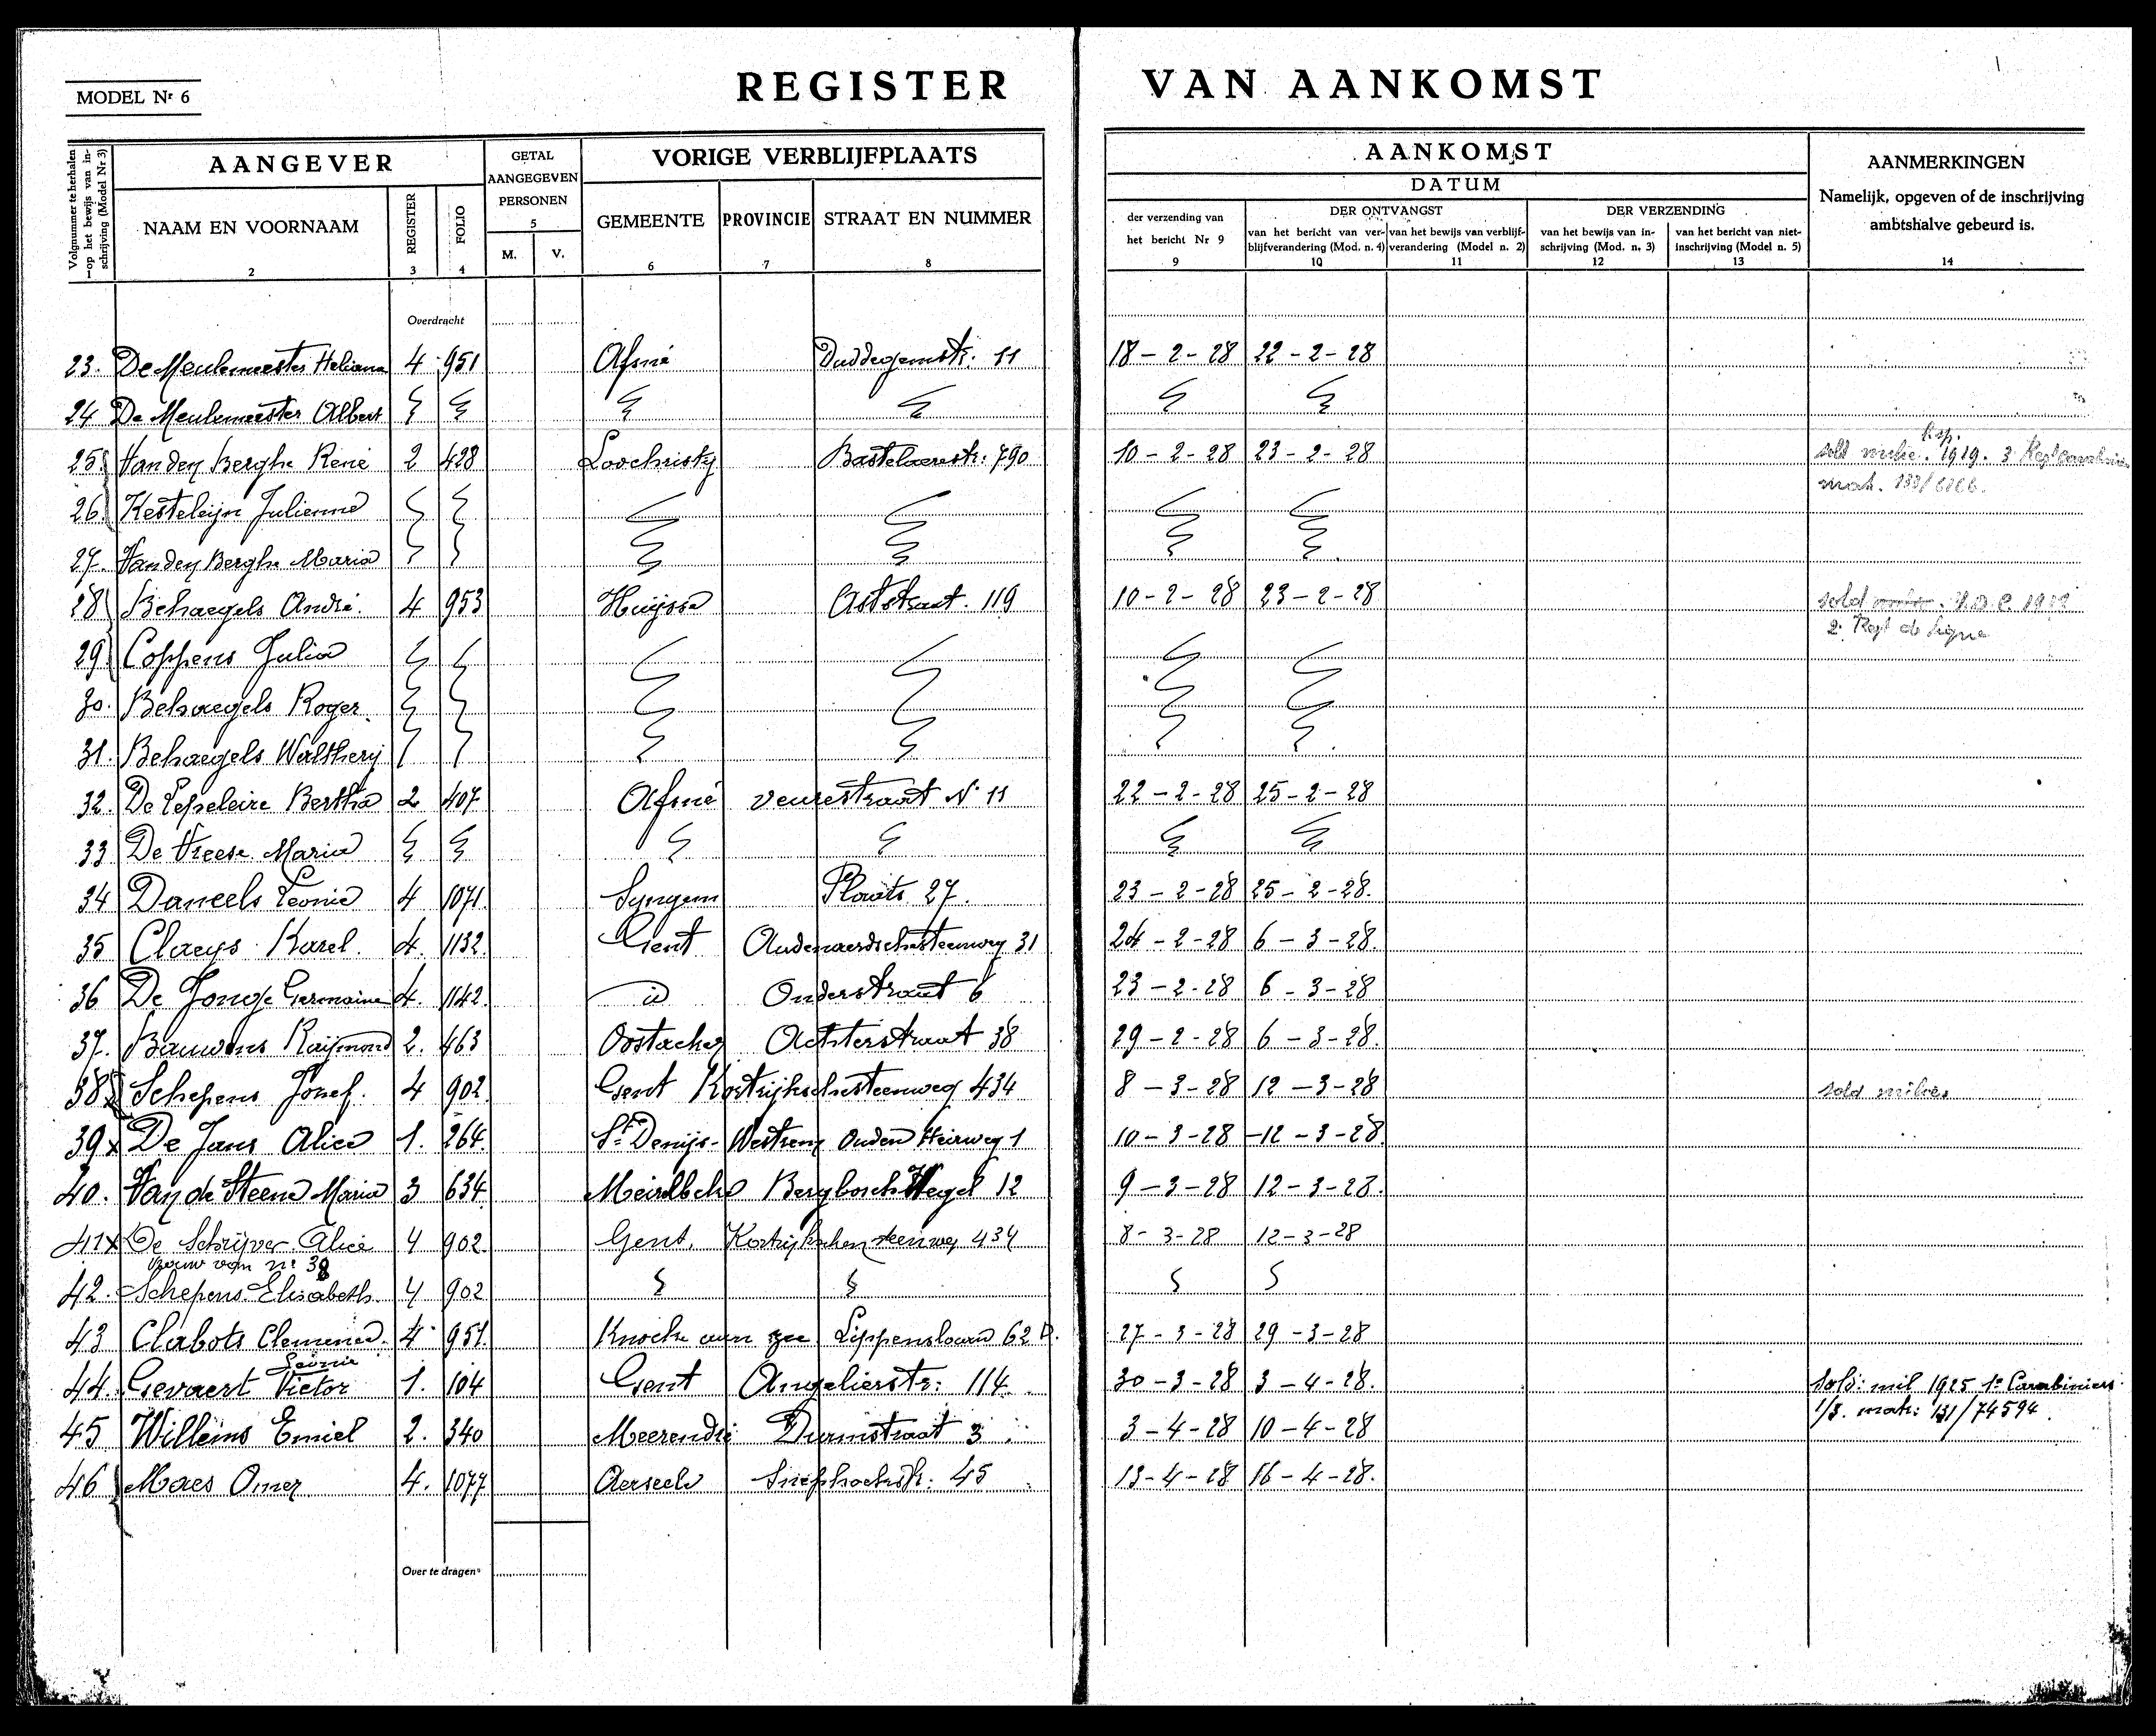 MODEL Nr 6
REGISTER VAN AANKOMST
Volgnummer te herhalen op het bewijs van inschrijving (Model Nr 3)
AANGEVER
NAAM EN VOORNAAM
2
REGISTER
3
FOLIO
4
GETAL AANGEGEVEN PERSONEN
5
M. V.
VORIGE VERBLIJFPLAATS
GEMEENTE
6
PROVINCIE
7
STRAAT EN NUMMER
8
AANKOMST
DATUM
der verzending van het bericht Nr 9
9
DER ONTVANGST
van het bericht van verblijfverandering (Mod. n. 4)
10
van het bewijs van verblijfverandering (Model n. 2)
11
DER VERZENDING
van het bewijs van inschrijving (Mod. n. 3)
12
van het bericht van niet-inschrijving (Model n. 5)
13
AANMERKINGEN
Namelijk, opgeven of de inschrijving ambtshalve gebeurd is.
14
Overdracht
23. De Meulemeester Heliana 4 951 Afsné 11 18-2-28 22-2-28
24 De Meulemeester Albert
25 Vanden Berghe René 2 428 Loochristy 790 10-2-28 23-2-28 sold milic. 1919. 3 Regt
26 Kesteleijn Julienne
27. Vanden Berghe Maria
28 Behaegels André. 4 953 Huijsse Aststraat. 119 10-2-28 23-2-28 sold 2. Regt de ligne
29 Coppens Julia
30. Behaegels Roger.
31. Behaegels Waltherij
32. De Pepeleire Bertha 2 407 Afsné Veurestraat N. 11 22-2-28 25-2-28
33 De Vreese Maria
34 Daneels Leonie 4 1071. Syngem Plaats 27. 23-2-28 25-2-28.
35 Claeys Karel. 4. 1132. Gent Audenaerdschesteenweg 31 24-2-28 6-3-28.
36 De Jonge Germaine 4. 1142. id Onderstraat 6 23-2-28 6-3-28
37. Bauwens Raijmond 2. 463 Oostacker Achterstraat 38 29-2-28 6-3-28.
38 Schepens Jozef. 4 902 Gent Kortrijkschesteenweg 434 8-3-28 12-3-28 sold milicie
39x De Jans Alice 1. 264. St Denijs-Westrem Ouden Heirweg 1 10-3-28 12-3-28.
40. Van de Steene Maria 3 634. Meirelbeke Bergbosch Wegel 12 9-3-28 12-3-28.
41x De Schrijver Alice 4 902. Gent, Kortrijkschen steenweg 434 8-3-28 12-3-28
vrouw van nr 38
42. Schepens Elisabeth. 4 902
43 Clabots Clemence. 4 951. Knocke aan zee Lippenslaan 62 27-3-28 29-3-28
Leonie
44. Gevaert Victor 1. 104 Gent Angelierstr: 114. 30-3-28 3-4-28. sold: mil 1925 1e Carabiniers
1/3. mat: 131/74594.
45 Willems Emiel 2. 340 Meerendré Durmstraat 3 3-4-28 10-4-28
46 Maes Omer 4. 1077 Aerseele 45 13-4-28 16-4-28.
Over te dragen